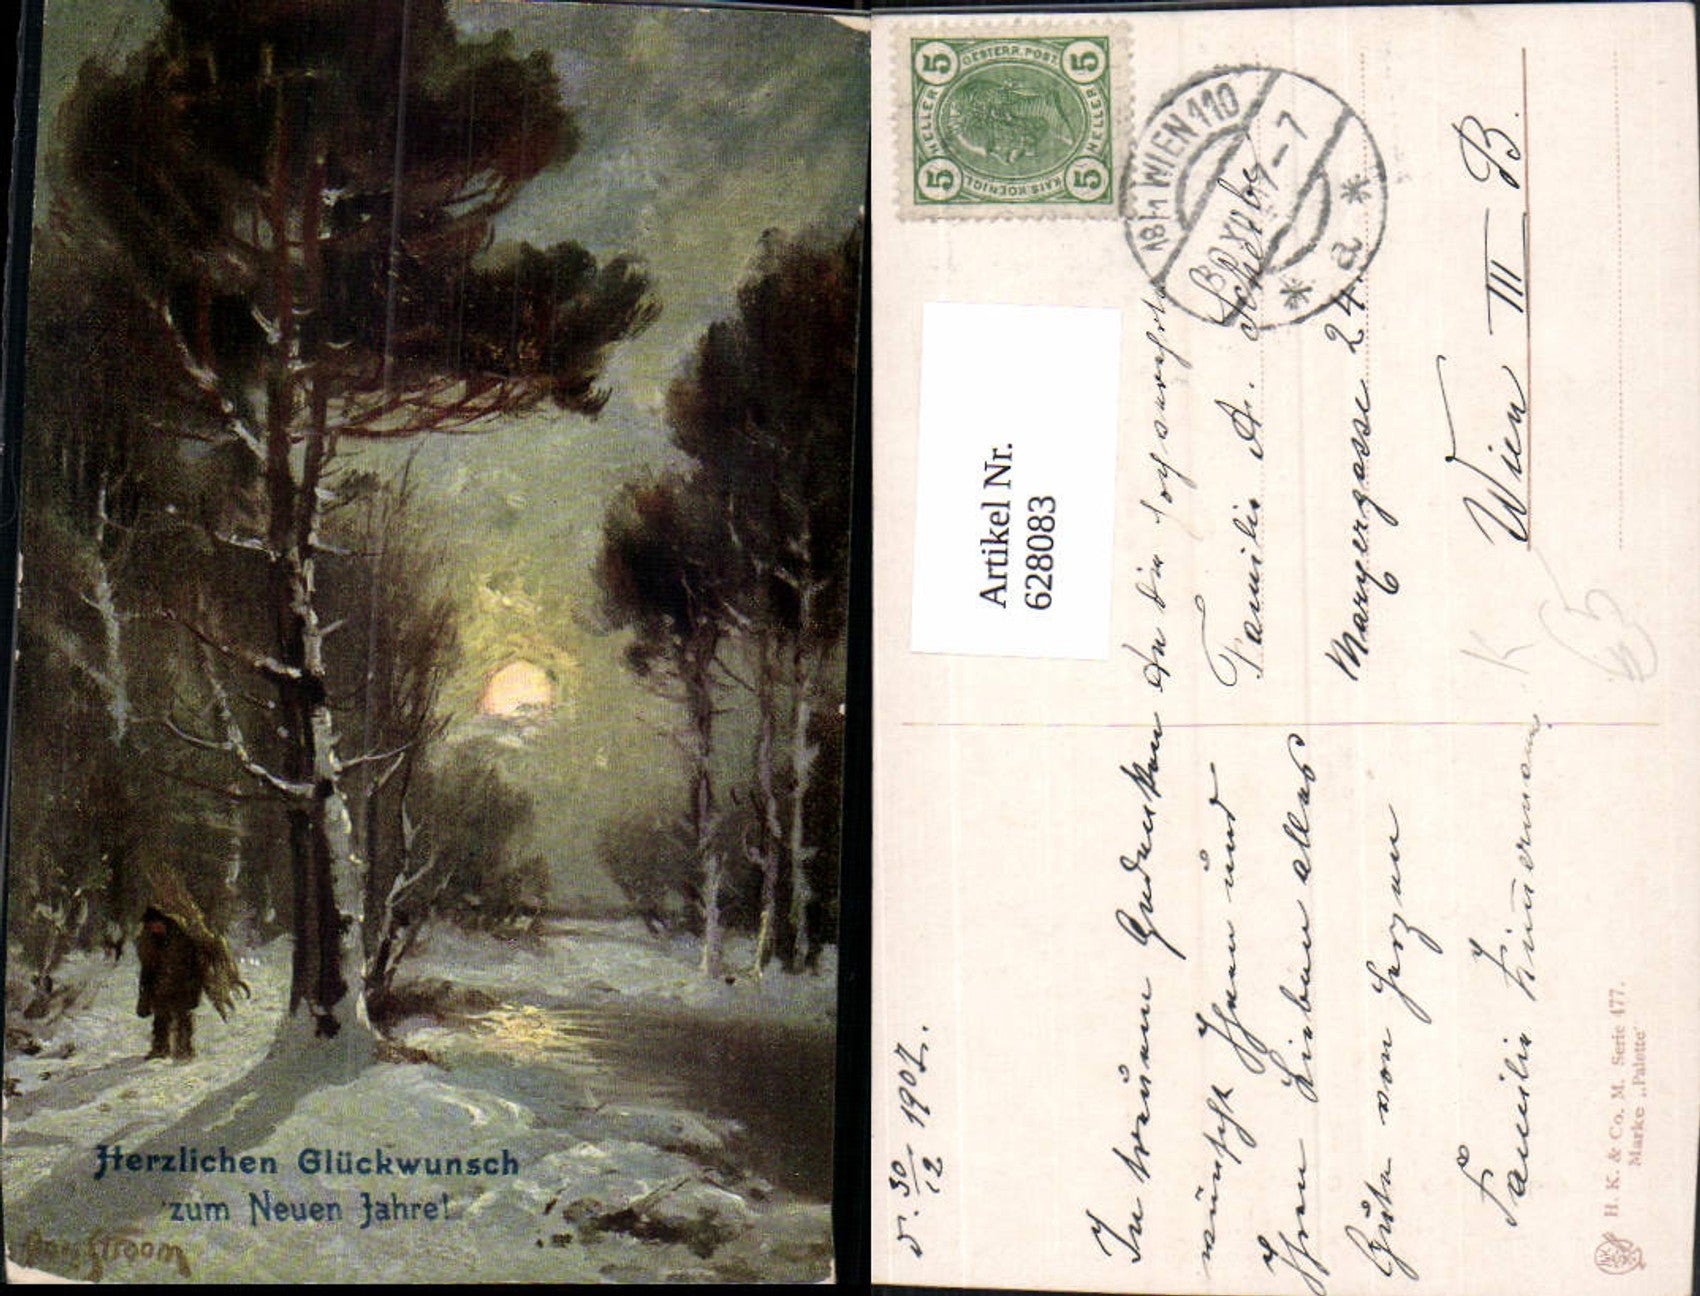 Herzlichen Glückwunsch
zum Neuen Jahre!
5 OESTERR. POST. 5
HELLER HELLER
5 KAIS. KOENIGL. 5
18/1 WIEN 110
30 XII 07 - 7
* a *
Artikel Nr.
628083
An die hochverehrte
Familie A.
Marxergasse 24.
Wien III B.
d. 30/12 1907.
In treuem Gedenken
wünscht Ihnen und
Ihren Lieben alles
Gute von Herzen
Familie
H. K. & Co. M. Serie 477.
Marke „Palette"